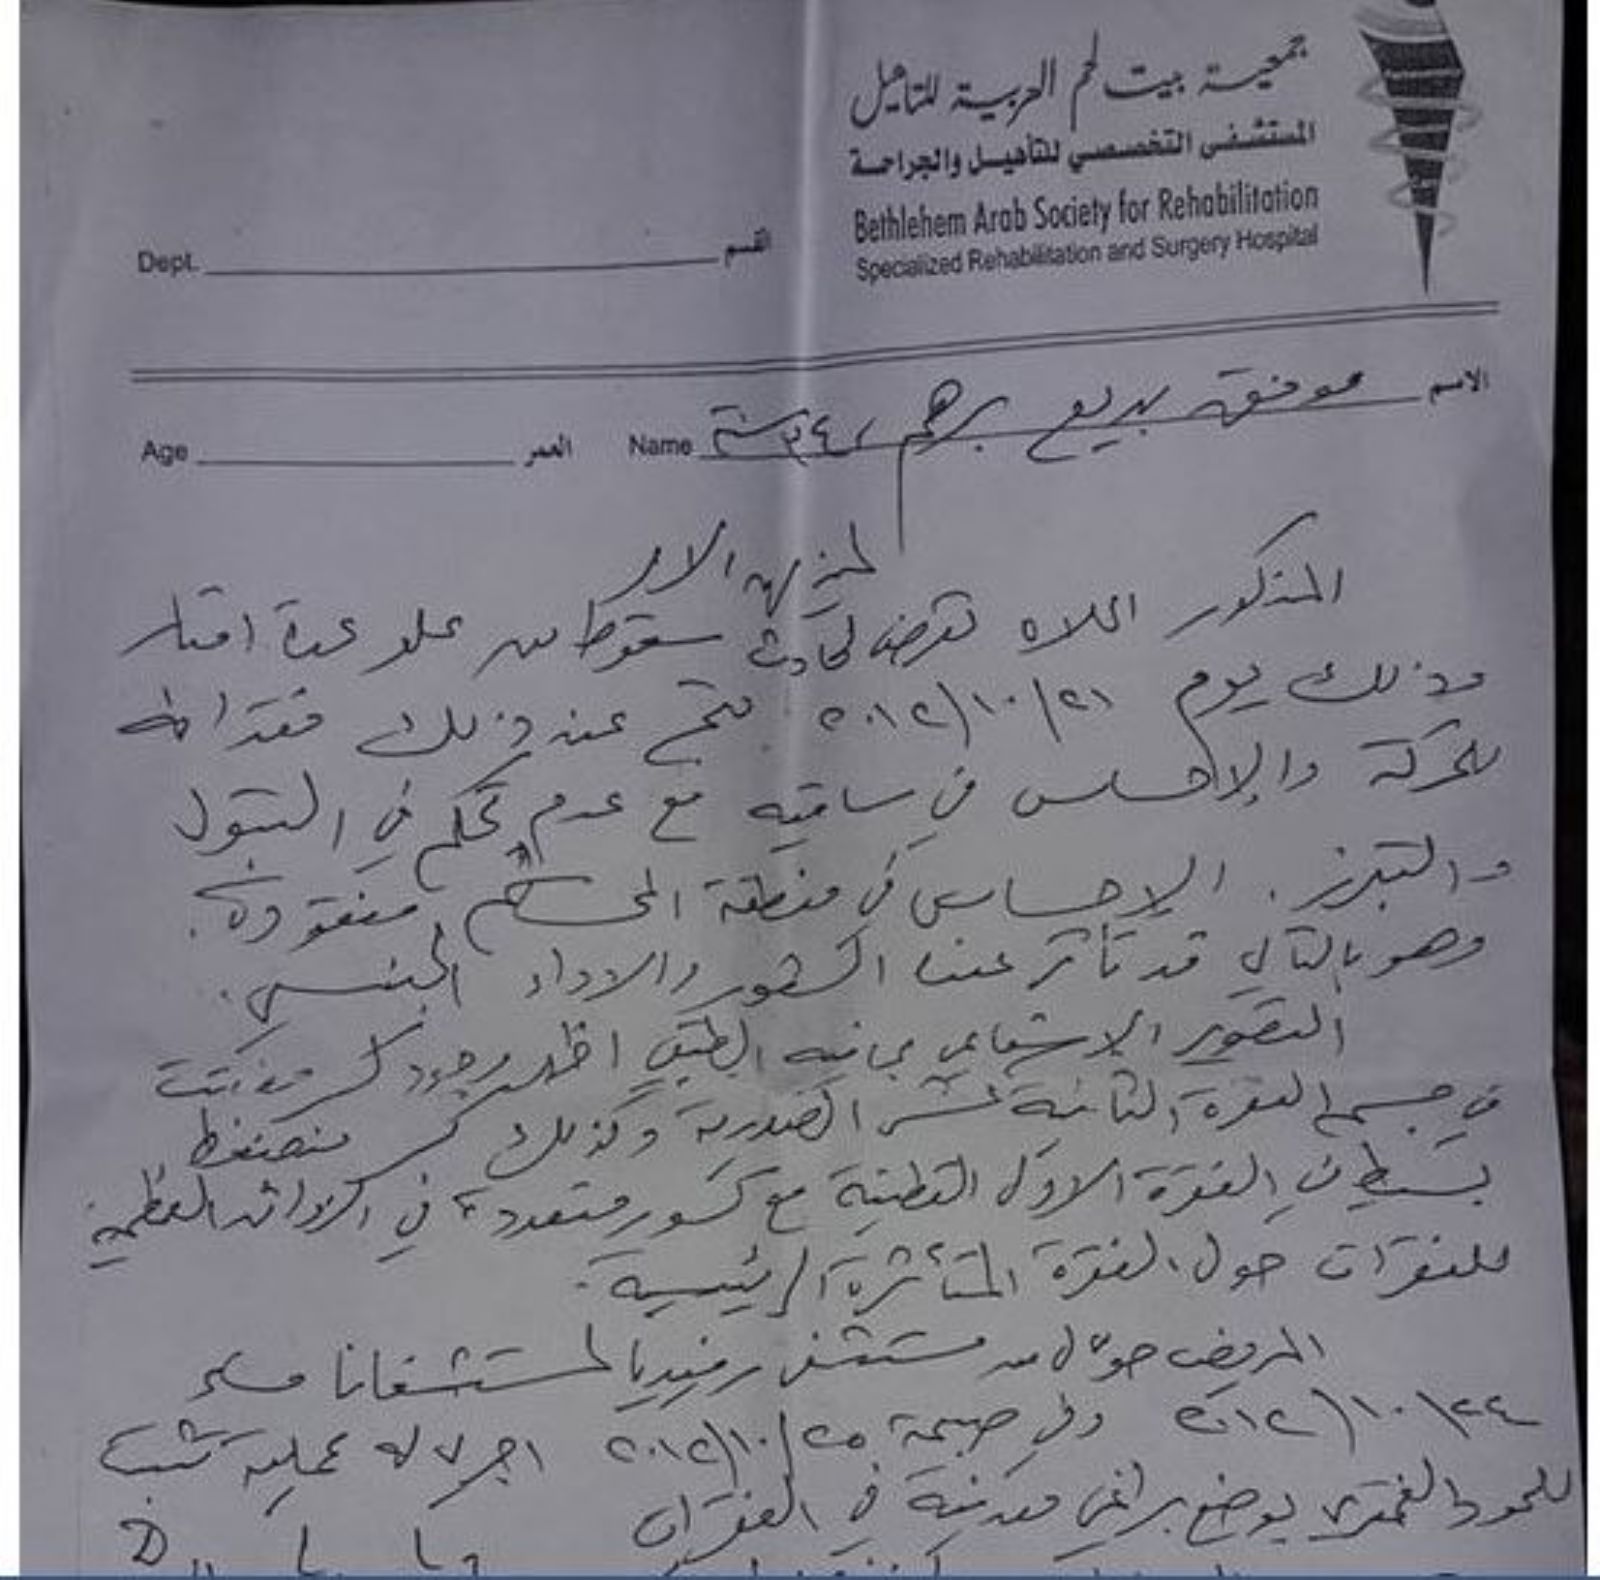 جمعية بيت لحم العربية للتأهيل
المستشفى التخصصي للتأهيل والجراحة
Bethlehem Arab Society for Rehabilitation
Specialized Rehabilitation and Surgery Hospital
Dept. القسم
الاسم موفق بديع برهم، ٣٤ سنة Name
العمر Age
لمن يهمه الأمر
المذكور اعلاه تعرض لحادث سقوط من علو عدة امتار
وذلك يوم ٢١/١٠/٢٠١٢. نتج عن ذلك فقدانه
للحركة والإحساس في ساقيه مع عدم تحكم في التبول
والتبرز. الإحساس في منطقة مفقودة.
وهو بالتالي قد تأثر عنده الشعور والاداء الجنسي.
التصوير الإشعاعي بجانبه الطبقي اظهر وجود كسر مفتت
في جسم الفقرة الثانية عشر الصدرية وكذلك كسر منضغط
بسيط في الفقرة الاولى القطنية مع كسور متعددة في الزوائد العظمية
للفقرات حول الفقرة المتأثرة الرئيسية.
المريض حوّل من مستشفى رفيديا لمستشفانا مساء
٢٤/١٠/٢٠١٢ وفي صبيحة ٢٥/١٠/٢٠١٢ اجري له عملية تثبيت
للعمود الفقري بوضع براغي معدنية في الفقرات